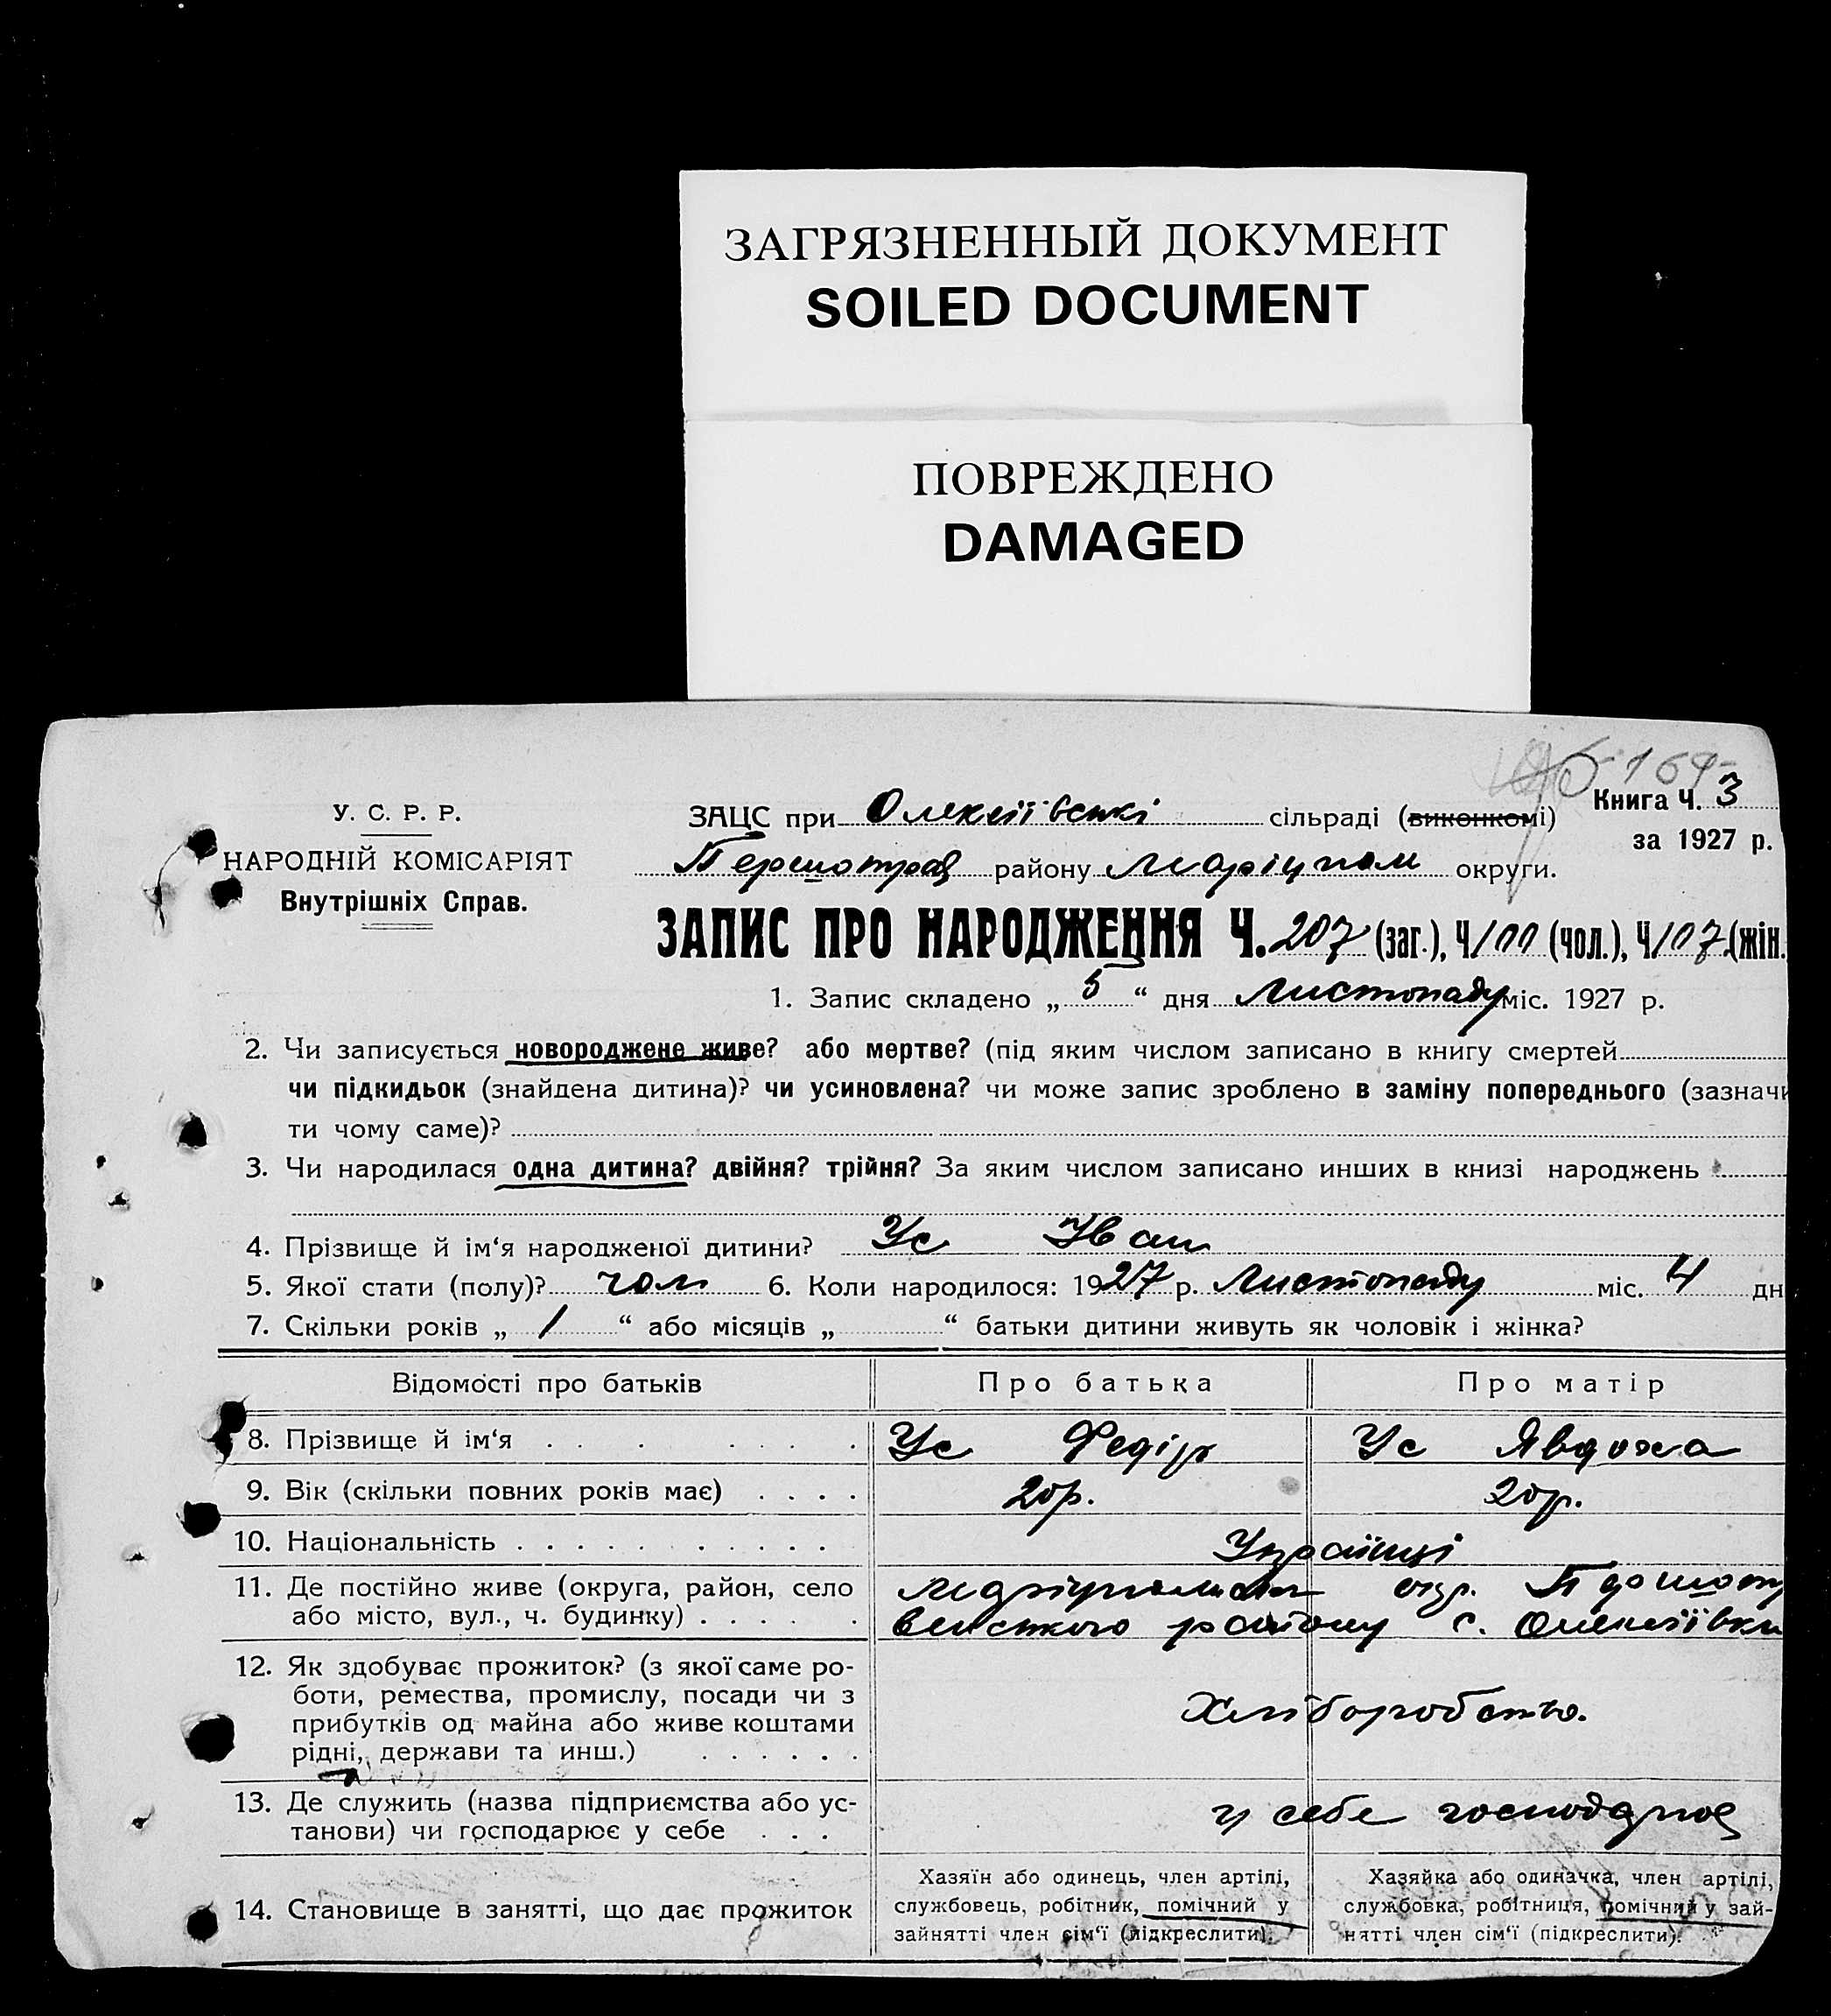 ЗАГРЯЗНЕННЫЙ ДОКУМЕНТ
SOILED DOCUMENT
ПОВРЕЖДЕНО
DAMAGED
169
У. С. Р. Р.
НАРОДНІЙ КОМІСАРІЯТ
Внутрішніх Справ.
ЗАЦС при Олексіївській сільраді (виконкомі)
Першотрав району Маріупол округи.
Книга Ч. 3
за 1927 р.
ЗАПИС ПРО НАРОДЖЕННЯ Ч. 207 (заг.), Ч 100 (чол.), Ч 107 (жін.
1. Запис складено „ 5 “ дня Листопаду міс. 1927 р.
2. Чи записується новороджене живе? або мертве? (під яким числом записано в книгу смертей
чи підкидьок (знайдена дитина)? чи усиновлена? чи може запис зроблено в заміну попереднього (зазначи
ти чому саме)?
3. Чи народилася одна дитина? двійня? трійня? За яким числом записано инших в книзі народжень
4. Прізвище й ім‘я народженої дитини? Ус Іван
5. Якої стати (полу)? чол 6. Коли народилося: 1927 р. Листопаду міс. 4 дн
7. Скільки років „ 1 “ або місяців „ “ батьки дитини живуть як чоловік і жінка?
Відомості про батьків Про батька Про матір
8. Прізвище й ім‘я Ус Федір Ус Явдоха
9. Вік (скільки повних років має) 20р. 20р.
10. Національність Українці
11. Де постійно живе (округа, район, село
або місто, вул., ч. будинку)
окр.
району с. Олексіївки
12. Як здобуває прожиток? (з якої саме ро-
боти, ремества, промислу, посади чи з
прибутків од майна або живе коштами
рідні, держави та инш.)
Хліборобство.
13. Де служить (назва підприємства або ус-
танови) чи господарює у себе
у себе господарює
14. Становище в занятті, що дає прожиток
Хазяїн або одинець, член артілі,
службовець, робітник, помічний у
зайнятті член сім‘ї (підкреслити).
Хазяйка або одиначка, член артілі,
службовка, робітниця, помічний у зай-
нятті член сім‘ї (підкреслити).